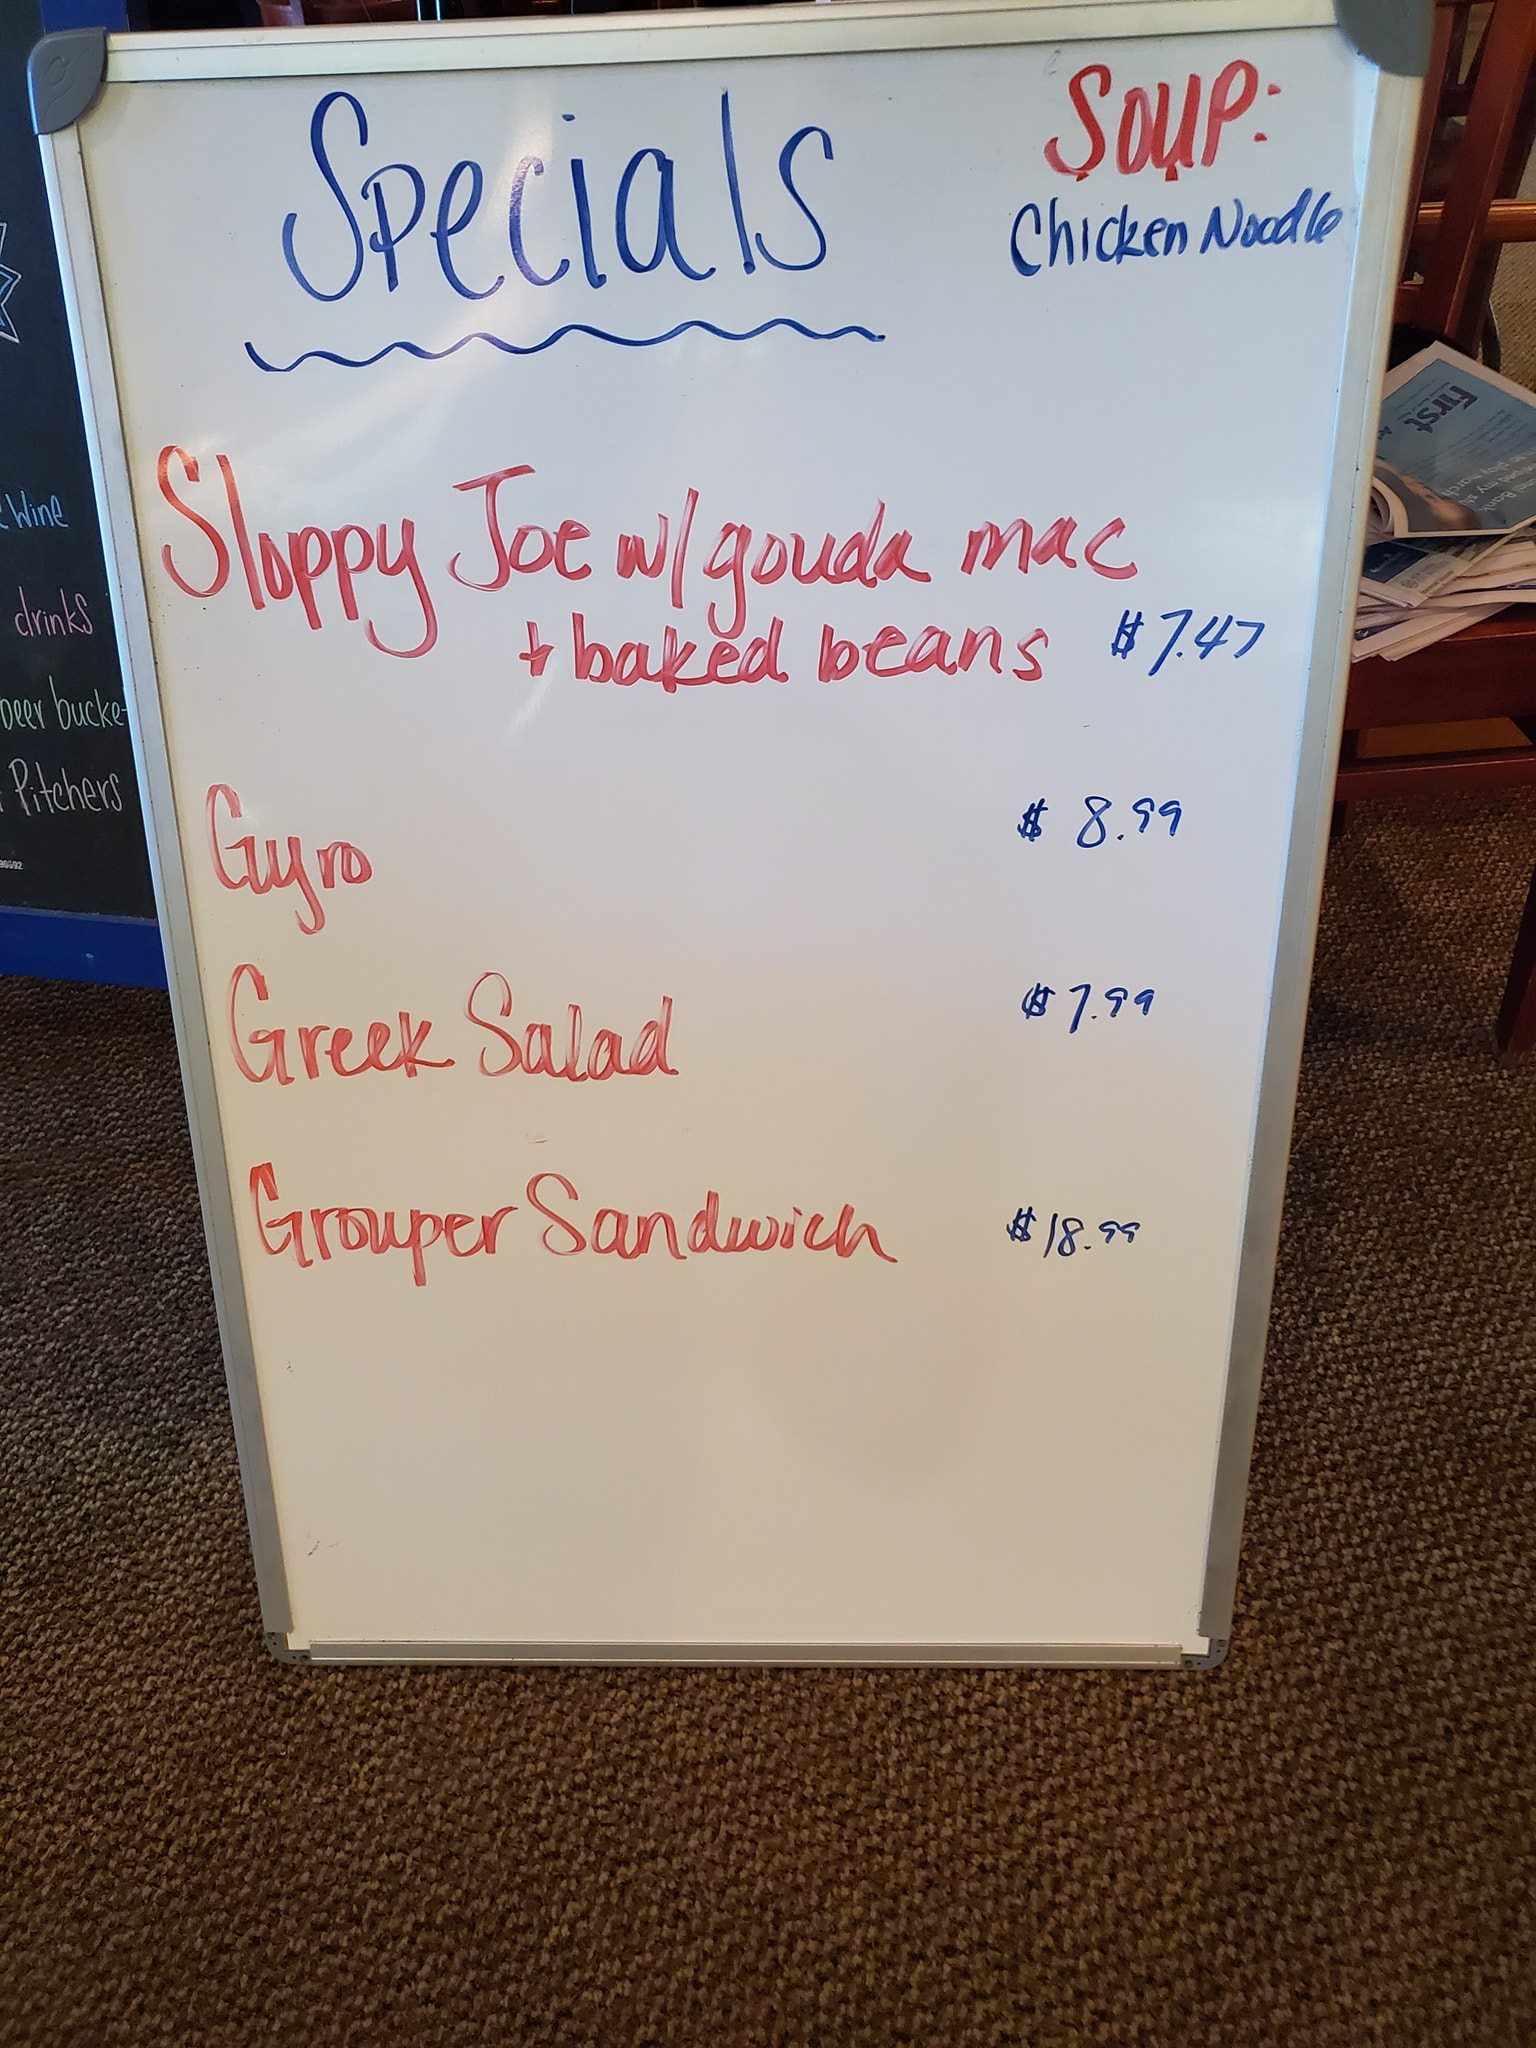 Specials
SOUP:
Chicken Noodle
Sloppy Joe w/ gouda mac
+ baked beans $7.47
Gyro $8.99
Greek Salad $7.99
Grouper Sandwich $18.99
Wine
drinks
beer bucke
Pitchers
First